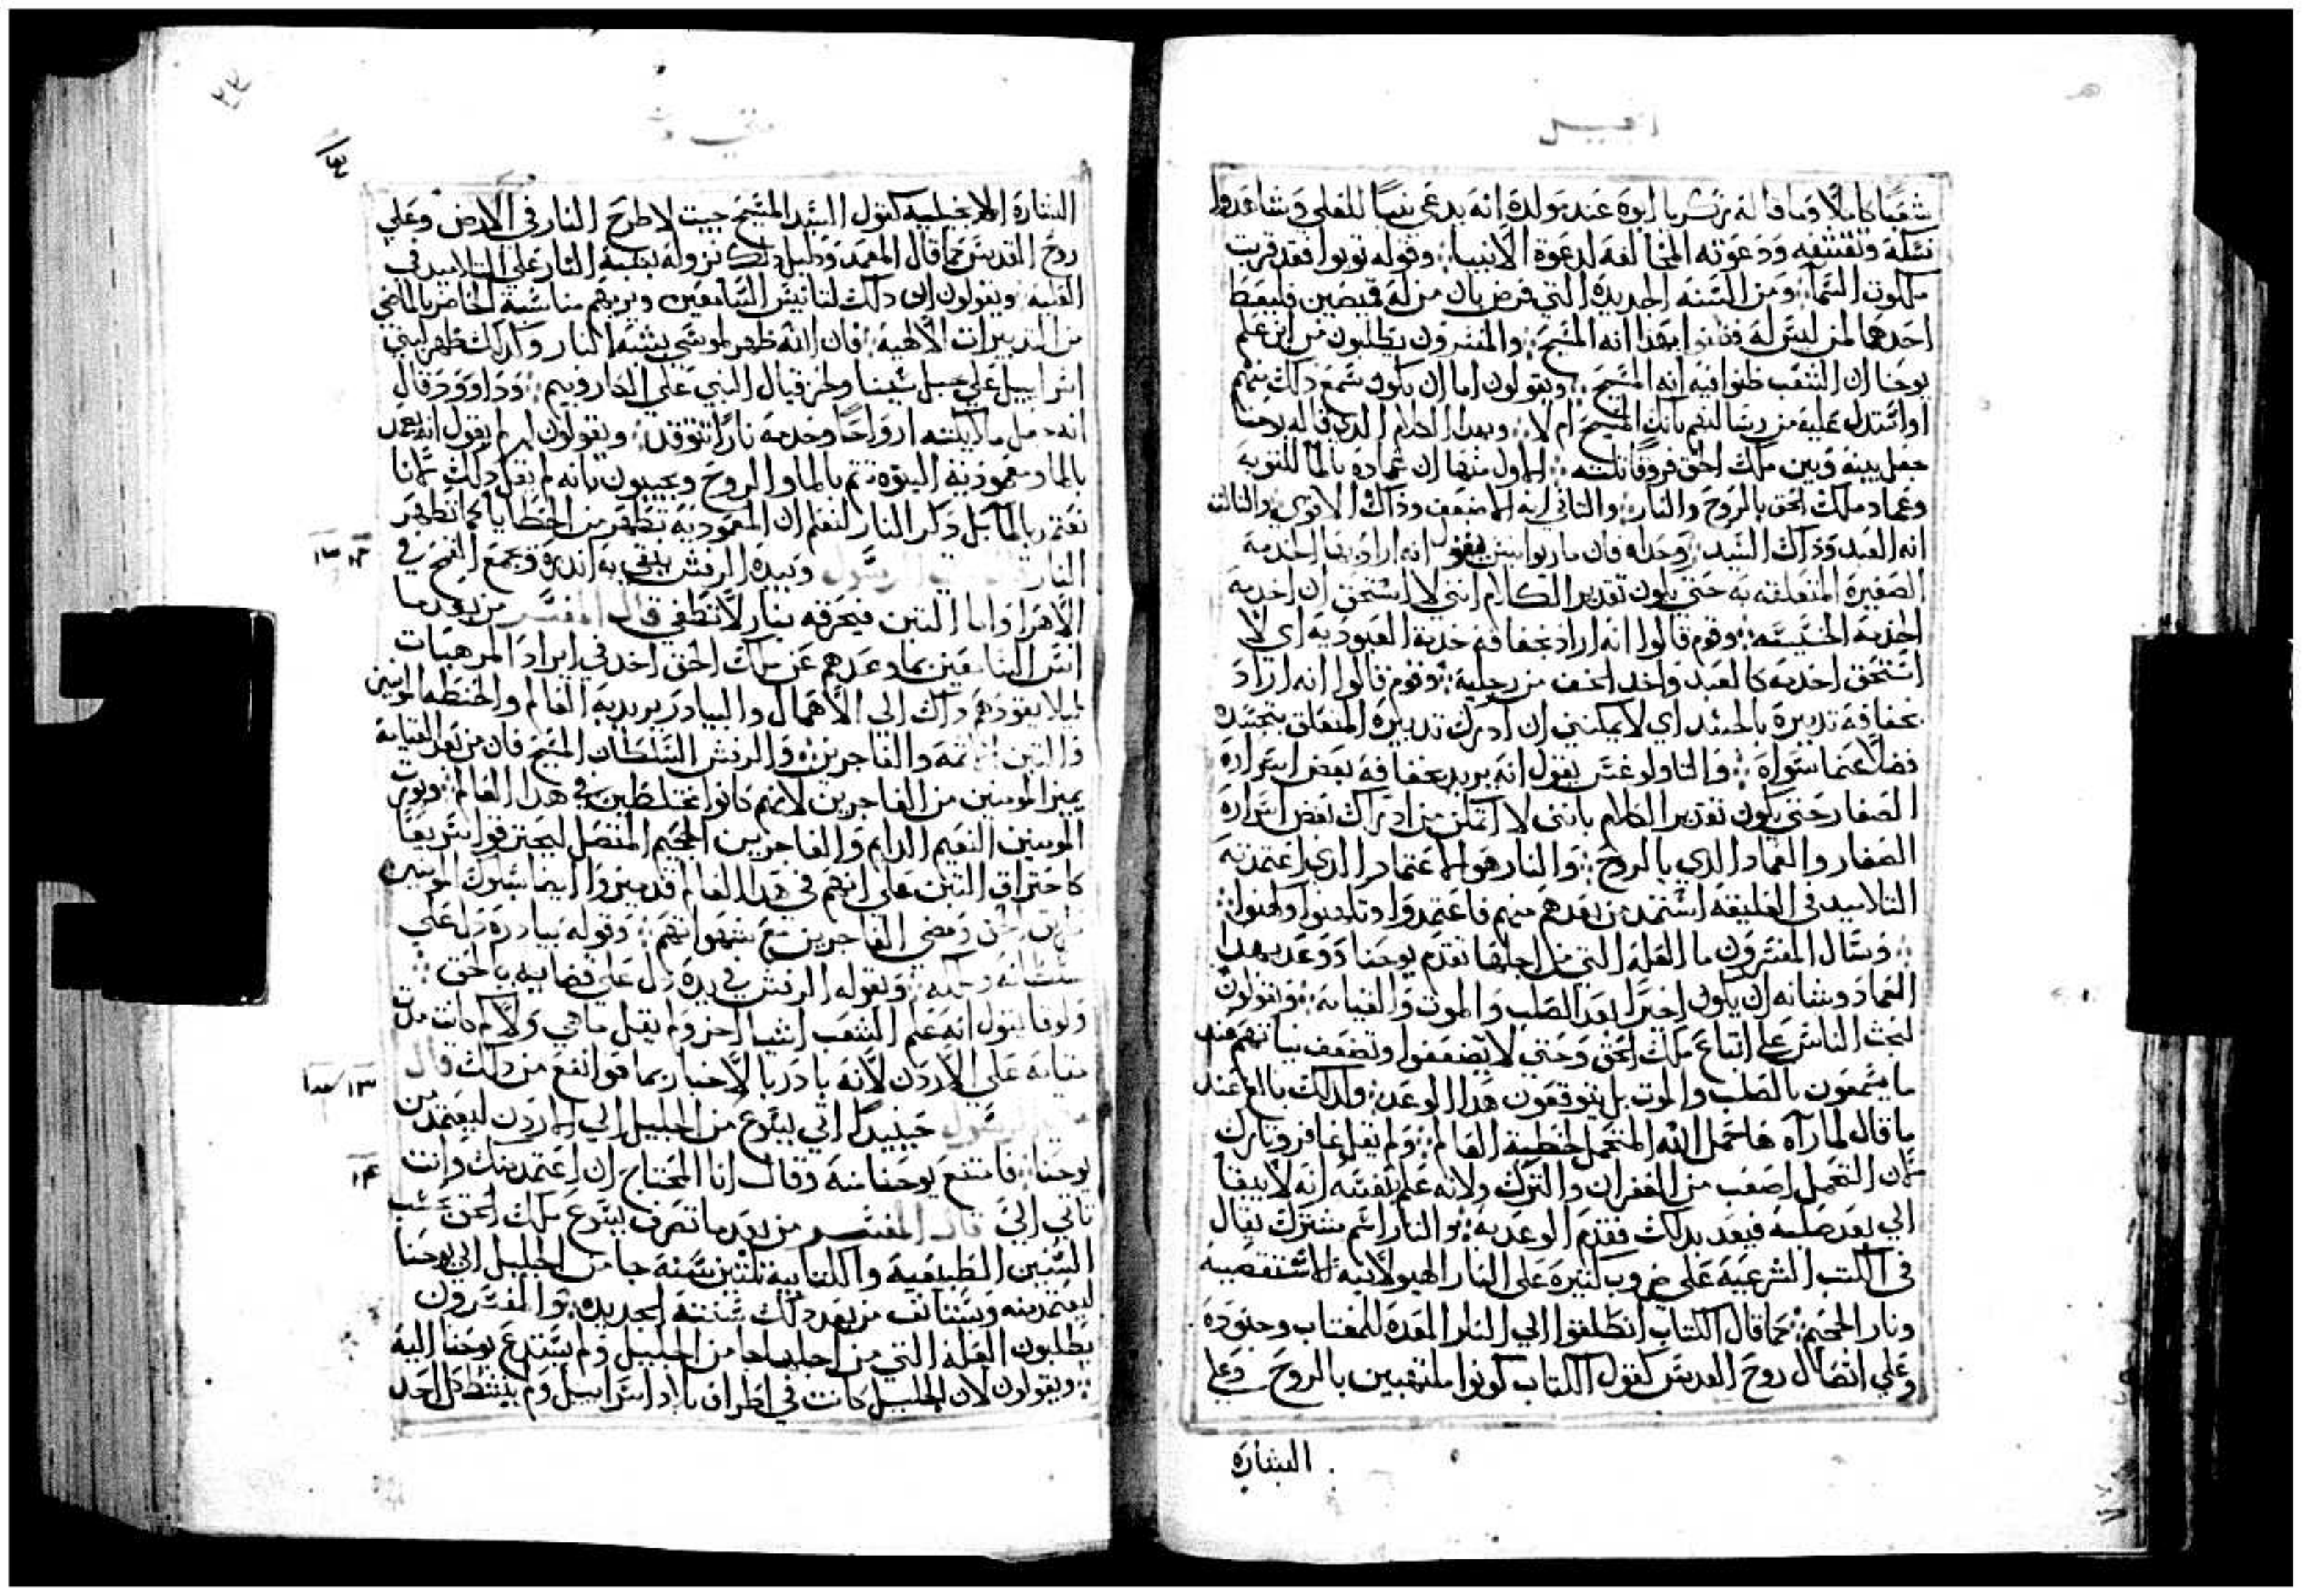 انجيل
شعبًا كاملًا وما قاله زكريا ابوه عند مولده انه يدعى نبيًا للعلي وشاهدوا
نسكه وتقشفه ودعوته المخالفه لدعوة الانبيا وقوله توبوا فقد قربت
ملكوت السما ومن السنه الجديده التي فرض بان من له قميصين فليعط
احدهما لمن ليس له فظنوا بهذا انه المسيح والمفسرون يطلبون من اين علم
يوحنا ان الشعب ظنوا فيه انه المسيح ويقولون اما ان يكون سمع ذلك منهم
او استدل عليه من رسالتهم بانك المسيح ام لا وبهذا الكلام الذي قاله يوحنا
جعل بينه وبين ملك الحق فروقا ثلثه الاول منها ان عماده بالما للتوبه
وعماد ملك الحق بالروح والنار والثاني انه الاضعف وذاك الاقوي والثالث
انه العبد وذاك السيد وحداه فان ماربوانيس يقول انه اراد بها الخدمه
الصغيره المتعلقه به حتي يكون تقدير الكلام انني لا استحق ان اخدمه
الخدمه الخسيسه وقوم قالوا انه اراد بخفافه خدمة العبوديه اي لا
استحق اخدمه كالعبد واخد الخف من رجليه وقوم قالوا انه اراد
بخفافه تدبيره بالجسد اي لا يمكنني ان ادرك تدبيره المتعلق بتجسده
فضلًا عما سواه والثاولوغس يقول انه يريد بخفافه بعض اسراره
الصغار حتي يكون تقدير الكلام بانني لا اتمكن من ادراك بعض اسراره
الصغار والعماد الدي بالروح والنار هو الاعتماد الدي اعتمدته
التلاميد في العليقه استمد من بعدهم منهم فاعتمدوا وتلمدوا وكهنوا
وسال المفسرون ما العله التي من اجلها تقدم يوحنا ووعد بهدا
العماد وشانه ان يكون اخيرًا بعد الصلب والموت والقيامه ويقولون
ليحث الناس علي اتباع ملك الحق وحتي لا يضعفوا وتضعف نياتهم عند
ما يسمعون بالصلب والموت بل يتوقعون هدا الوعد ولدلك بالغ عند
ما قال لما رآه هاحمل الله المتحمل خطية العالم ولم يقل غافر وتارك
لان التحمل اصعب من الغفران والترك ولانه علم بنفسه انه لا يبقا
الي بعد صلبه فيعد بدلك فقدم الوعد به والنار اسم مشترك يقال
في الكتب الشرعيه علي ضروب كثيره علي النار الهيولانيه الاسطقسيه
ونار الجحيم كما قال الكتاب انطلقوا الي النار المعده للمغتاب وجنوده
وعلي اتصال روح القدس كقول الكتاب كونوا ملتهبين بالروح وعلي
البشارة
متي
البشارة الانجيليه كقول السيد المسيح جيت لاطرح النار في الارض وعلي
روح القدس كما قال المعمد ودليل ذلك نزوله بشبه النار علي التلاميد في
العليه ويقولون ان دلك لتانيس السامعين ويريهم مناسبة الحاضر بالماضي
من التدبيرات الالهيه فان الله ظهر لموسي بشبه النار وكدلك ظهر لبني
اسراييل علي جبل سينا ولحزقيال النبي علي الكاروبيم وداوود قال
انه جعل ملايكته ارواحًا وخدمه نارًا تتوقد ويقولون لم لم يقول انه يعمد
بالما ومعموديه البنوة تتم بالما والروح ويجيبون بانه لم يقل ذلك لاننا
نعتمد بالما بل ذكر النار لنعلم ان المعموديه تطهر من الخطايا كما تطهر
النار قال الرسول وبيده الرفش ينقي به اندره ويجمع القمح في
الاهرا واما التبن فيحرقه بنار لا تطفي قال المفسر من بعد ما
انس السامعين بما وعدهم عن ملك الحق اخد في ايراد المرهبات
ليلا يقودهم داك الي الاهمال والبيادر يريد به العالم والحنطه المومنين
والتبن الاثمه والفاجرين والرفش السلطان المسيح فان من بعد القيامه
يميز المومنين من الفاجرين لانهم كانوا مختلطين في هدا العالم ويورث
المومنين النعيم الدايم والفاجرين الجحيم المتصل ليحترقوا سريعًا
كاحتراق التبن علي انهم في هدا العالم قد ميزوا ايضا سلوك المومنين
طريق الحق ومضي الفاجرين مع شهواتهم وقوله بيادره دل علي
سلطانه وحكمه وبقوله الرفش في يده دل علي قضاييه بالحق
ولوقا يقول انه علم الشعب اشيا اخر ولم يقل ما هي ولا كم كانت مدة
مقامه علي الاردن لانه بادر بالاخبار بما هو انفع من ذلك قال
الرسول حينيدًا اتي يسوع من الجليل الي الاردن ليعتمد من
يوحنا فامتنع يوحنا منه وقال انا المحتاج ان اعتمد منك وانت
تاتي الي قال المفسر من بعد ما تصرف يسوع ملك الحق بحسب
السنين الطبيعيه والكتابيه ثلثين سنه جا من الجليل الي يوحنا
ليعتمد منه ويستانف من بعد ذلك سنته الجديده والمفسرون
يطلبون العله التي من اجلها جا من الجليل ولم يستدع يوحنا اليه
ويقولون لان الجليل كانت في اطراف بلاد اسراييل ولم ينشط كل احد